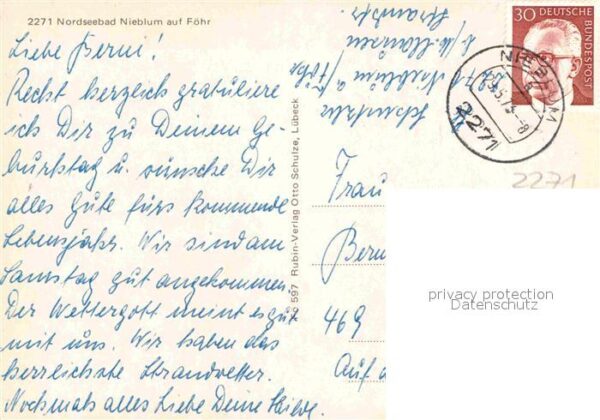 2271 Nordseebad Nieblum auf Föhr
Liebe Berni!
Recht herzlich gratuliere
ich Dir zu Deinem Ge-
burtstag u. wünsche Dir
alles Gute fürs kommende
Lebensjahr. Wir sind am
Samstag gut angekommen.
Der Wettergott meint es gut
mit uns. Wir haben das
herrlichste Strandwetter.
Nochmals alles Liebe Deine
597 Rubin-Verlag Otto Schulze, Lübeck
2271 Nieblum a/Föhr
30 DEUTSCHE BUNDESPOST
NIEBLUM
2271
2271
Frau
Bern
469
Auf d
privacy protection
Datenschutz